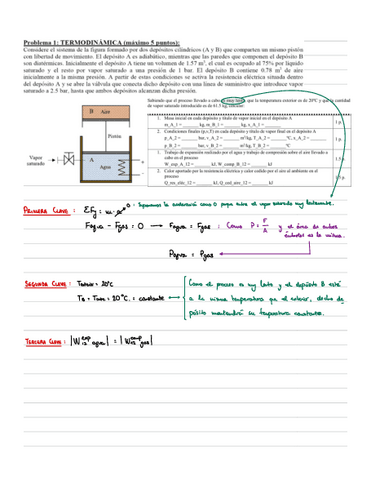 Problema 1: TERMODINÁMICA (máximo 5 puntos):
Considere el sistema de la figura formado por dos depósitos cilíndricos (A y B) que comparten un mismo pistón
con libertad de movimiento. El depósito A es adiabático, mientras que las paredes que componen el depósito B
son diatérmicas. Inicialmente el depósito A tiene un volumen de 1.57 m³, el cual es ocupado al 75% por líquido
saturado y el resto por vapor saturado a una presión de 1 bar. El depósito B contiene 0.78 m³ de aire
inicialmente a la misma presión. A partir de estas condiciones se activa la resistencia eléctrica situada dentro
del depósito A y se abre la válvula que conecta dicho depósito con una línea de suministro que introduce vapor
saturado a 2.5 bar, hasta que ambos depósitos alcanzan dicha presión.
Suponiendo que el proceso llevado a cabo es muy lento, que la temperatura exterior es de 20°C y que la cantidad
de vapor saturado introducido es de 41.5 kg, calcular:
B Aire
Pistón
Vapor
saturado
A
Agua
+
-
1. Masa inicial en cada depósito y título de vapor inicial en el depósito A
m_A_1 = kg, m_B_1 = kg, x_A_1 =
1 p.
2. Condiciones finales (p,v,T) en cada depósito y título de vapor final en el depósito A
p_A_2 = bar, v_A_2 = m³/kg, T_A_2 = °C, x_A_2 =
p_B_2 = bar, v_B_2 = m³/kg, T_B_2 = °C
1 p.
3. Trabajo de expansión realizado por el agua y trabajo de compresión sobre el aire llevado a
cabo en el proceso
W_exp_A_12 = kJ, W_comp_B_12 = kJ
4. Calor aportado por la resistencia eléctrica y calor cedido por el aire al ambiente en el
proceso
Q_res_eléc_12 = kJ, Q_ced_aire_12 = kJ
PRIMERA CLAVE : ΣFy = m·a
Fagua - Fgas = 0 → Fagua = Fgas ; Como P = F/A y el área de ambos
émbolos es la misma.
Pagua = Pgas
SEGUNDA CLAVE : Text = 20°C
TB = = 20°C. = constante
Como el proceso es muy lento y el depósito B está
a la misma temperatura que el exterior, dicho de-
pósito mantendrá su temperatura constante.
TERCERA CLAVE : |W₁₂ᵉˣᵖ agua| = |W₁₂ᶜᵒᵐᵖ gas|